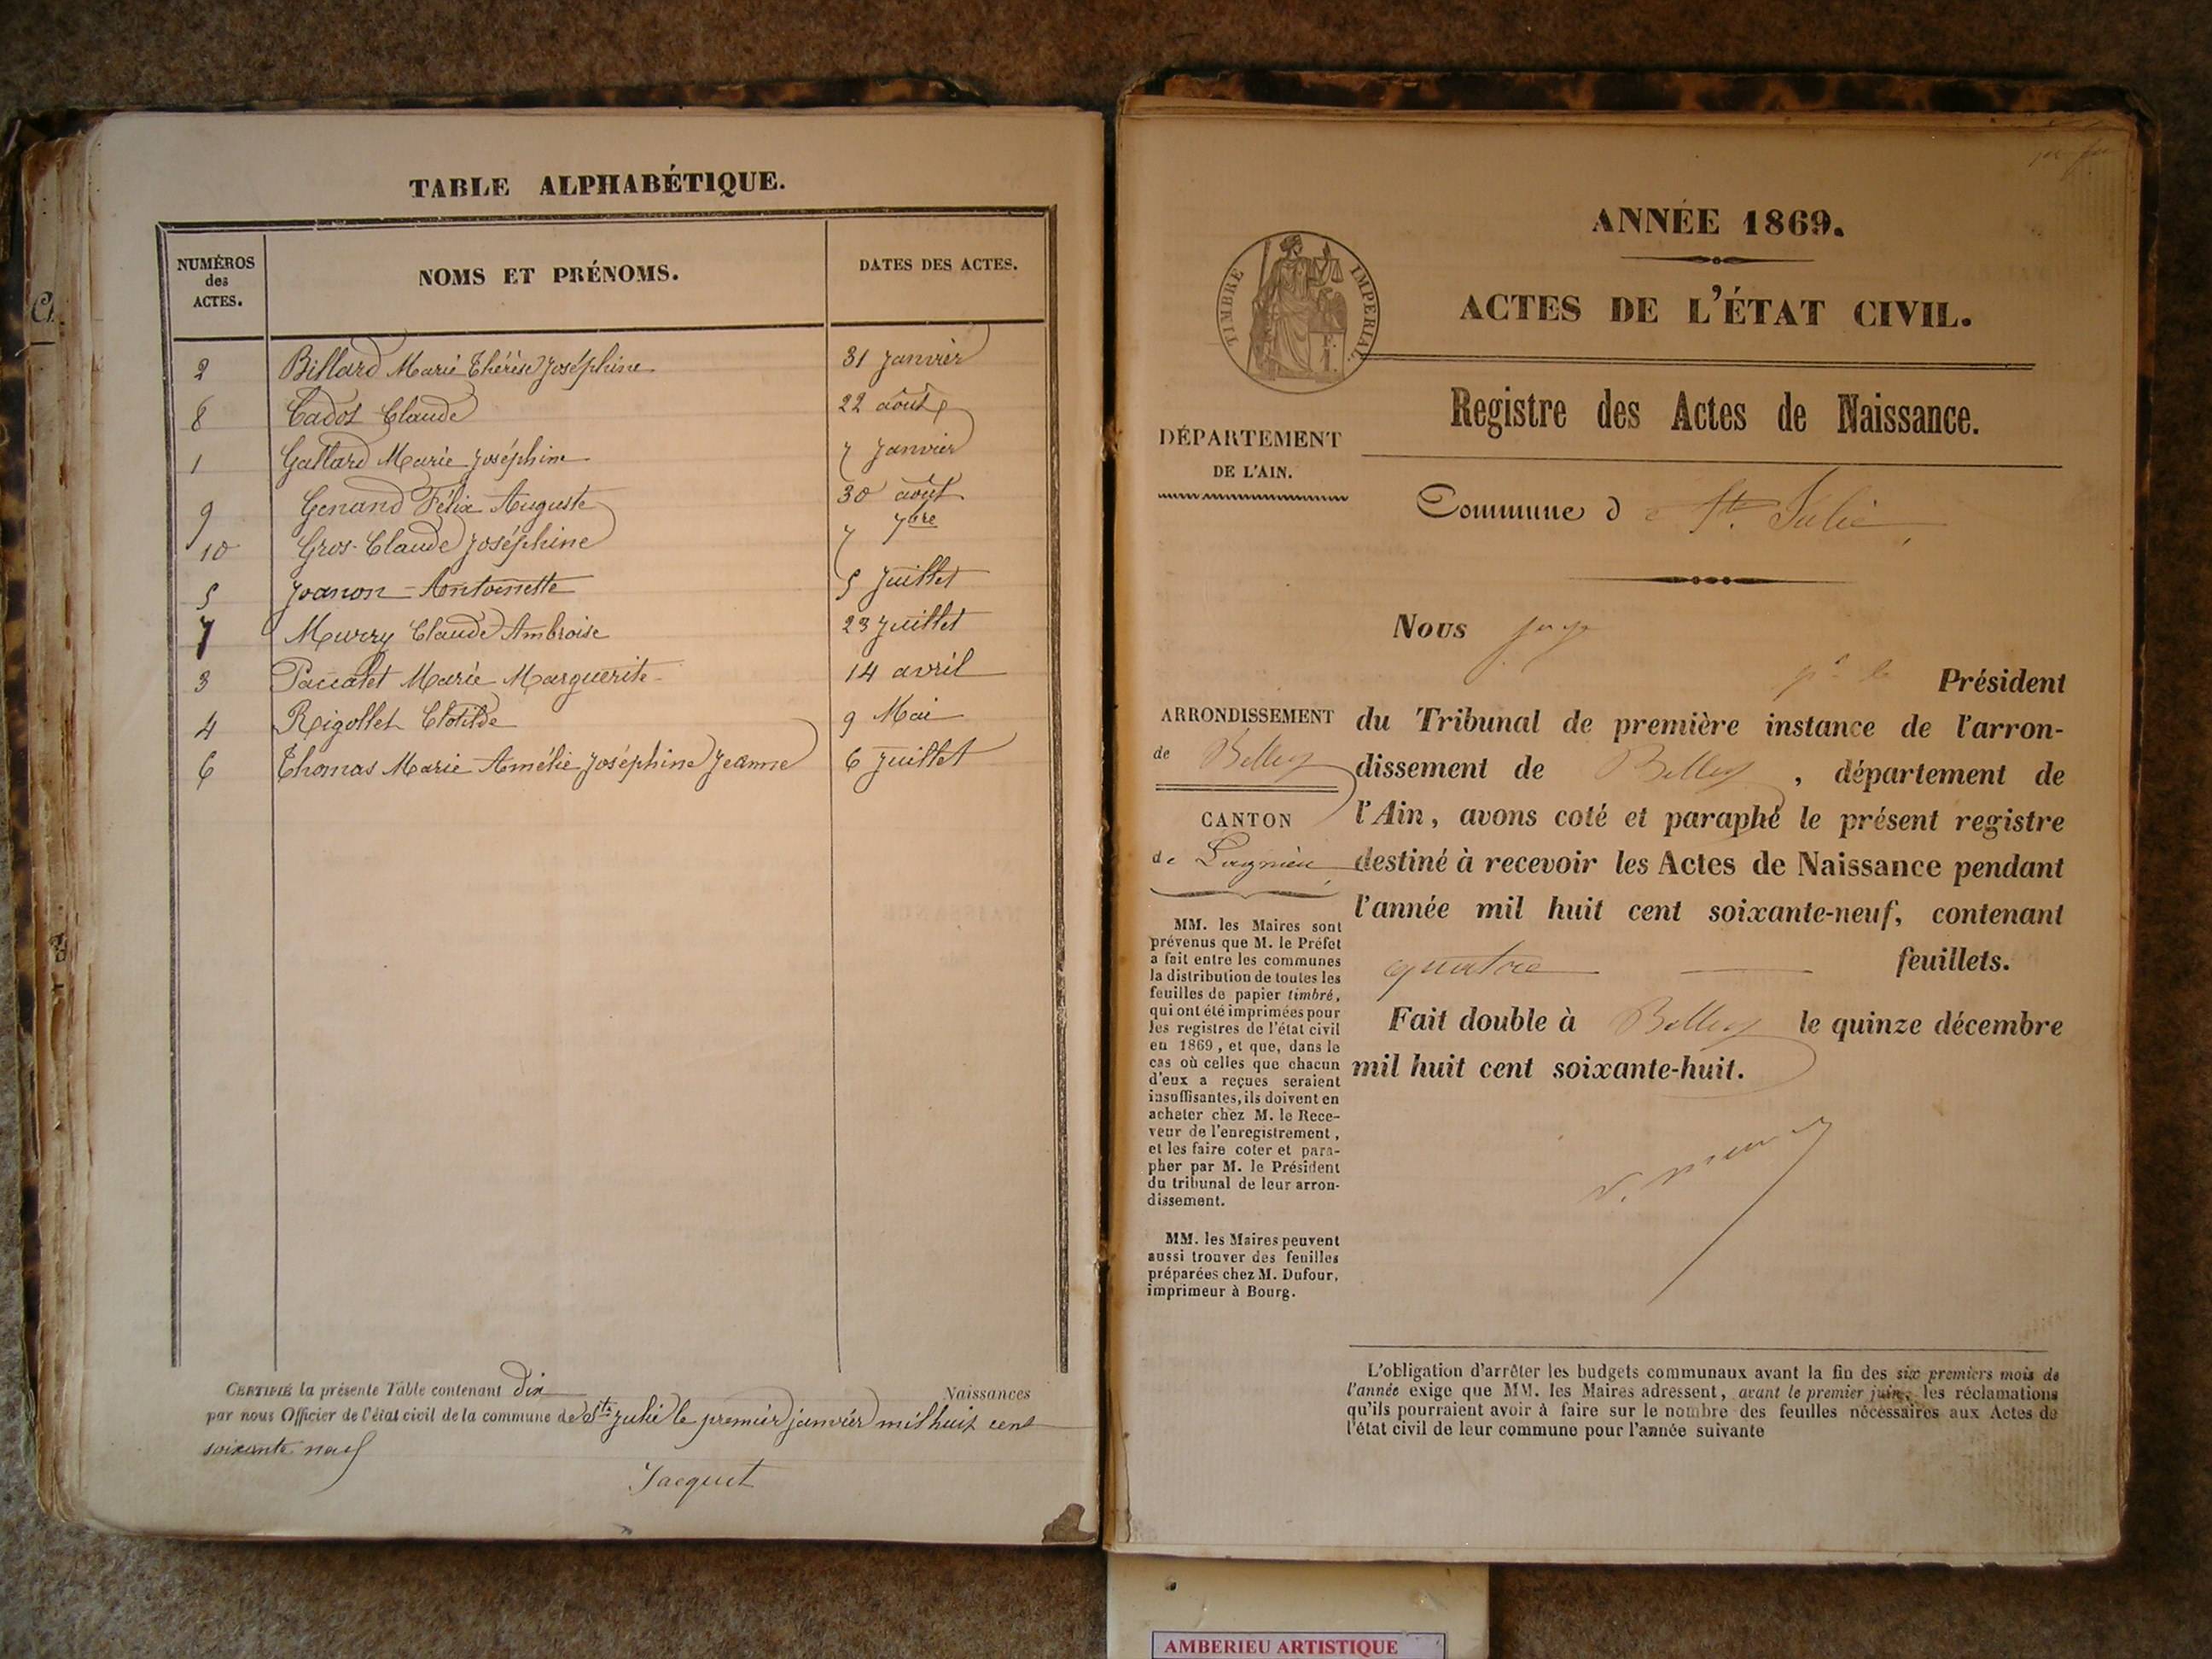 TABLE ALPHABÉTIQUE.
NUMÉROS des ACTES. NOMS ET PRÉNOMS. DATES DES ACTES.
2 Billard Marie Thérèse Joséphine 31 Janvier
8 Cadot Claude 22 août
1 Gallard Marie Joséphine 7 Janvier
9 Genand Félix Auguste 30 août
10 Gros-Claude Joséphine 7 7bre
5 Joanon Antoinette 5 Juillet
7 Murry Claude Ambroise 23 Juillet
3 Paccalet Marie Marguerite 14 avril
4 Rigollet Clotilde 9 Mai
6 Thomas Marie Amélie Joséphine Jeanne 6 Juillet
CERTIFIÉ la présente Table contenant dix Naissances
par nous Officier de l'état civil de la commune de Ste Julie le premier janvier mil huit cent
soixante neuf
Jacquet
ANNÉE 1869.
TIMBRE IMPÉRIAL.
ACTES DE L'ÉTAT CIVIL.
Registre des Actes de Naissance.
DÉPARTEMENT
DE L'AIN.
Commune de Ste Julie
Nous juge
pr le Président
ARRONDISSEMENT
de Belley
CANTON
de Lagnieu
du Tribunal de première instance de l'arron-
dissement de Belley, département de
l'Ain, avons coté et paraphé le présent registre
destiné à recevoir les Actes de Naissance pendant
l'année mil huit cent soixante-neuf, contenant
quatre feuillets.
Fait double à Belley le quinze décembre
mil huit cent soixante-huit.
MM. les Maires sont
prévenus que M. le Préfet
a fait entre les communes
la distribution de toutes les
feuilles de papier timbré,
qui ont été imprimées pour
les registres de l'état civil
en 1869, et que, dans le
cas où celles que chacun
d'eux a reçues seraient
insuffisantes, ils doivent en
acheter chez M. le Rece-
veur de l'enregistrement,
et les faire coter et para-
pher par M. le Président
du tribunal de leur arron-
dissement.
MM. les Maires peuvent
aussi trouver des feuilles
préparées chez M. Dufour,
imprimeur à Bourg.
L'obligation d'arrêter les budgets communaux avant la fin des six premiers mois de
l'année exige que MM. les Maires adressent, avant le premier juin, les réclamations
qu'ils pourraient avoir à faire sur le nombre des feuilles nécessaires aux Actes de
l'état civil de leur commune pour l'année suivante
AMBERIEU ARTISTIQUE